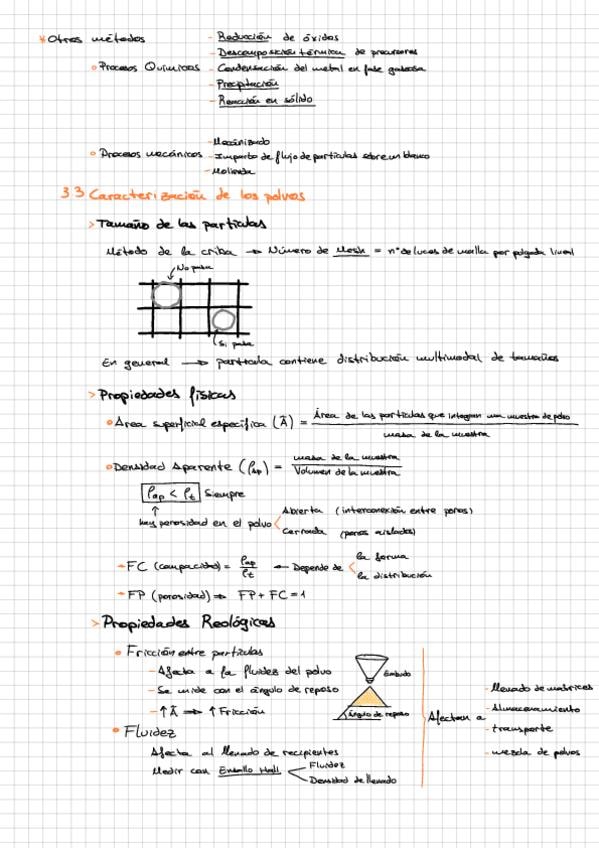 * Otros métodos
- Reducción de óxidos
- Descomposición térmica de precursores
○ Procesos Químicos - Condensación del metal en fase gaseosa
- Precipitación
- Reacción en sólido
- Mecanizado
○ Procesos mecánicos - Impacto de flujo de partículas sobre un blanco
- Molienda
3.3 Caracterización de los polvos
> Tamaño de las partículas
Método de la criba → Número de Mesh = nº de luces de malla por pulgada lineal
No pasa
Si pasa
En general → partícula contiene distribución multimodal de tamaños
> Propiedades físicas
○ Área superficial específica (Ā) = Área de las partículas que integran una muestra de polvo
masa de la muestra
○ Densidad Aparente (ρap) = masa de la muestra
Volumen de la muestra
ρap < ρt Siempre
↑
hay porosidad en el polvo < Abierta (interconexión entre poros)
Cerrada (poros aislados)
→ FC (compacidad) = ρap/ρt ← Depende de < la forma
la distribución
→ FP (porosidad) ⇒ FP + FC = 1
> Propiedades Reológicas
○ Fricción entre partículas
- Afecta a la fluidez del polvo
- Se mide con el ángulo de reposo
- ↑ Ā ⇒ ↑ Fricción
Embudo
Ángulo de reposo
○ Fluidez
Afecta al llenado de recipientes
Medir con Ensallo Hall < Fluidez
Densidad de llenado
Afectan a
- llenado de matrices
- Almacenamiento
- transporte
- mezcla de polvos